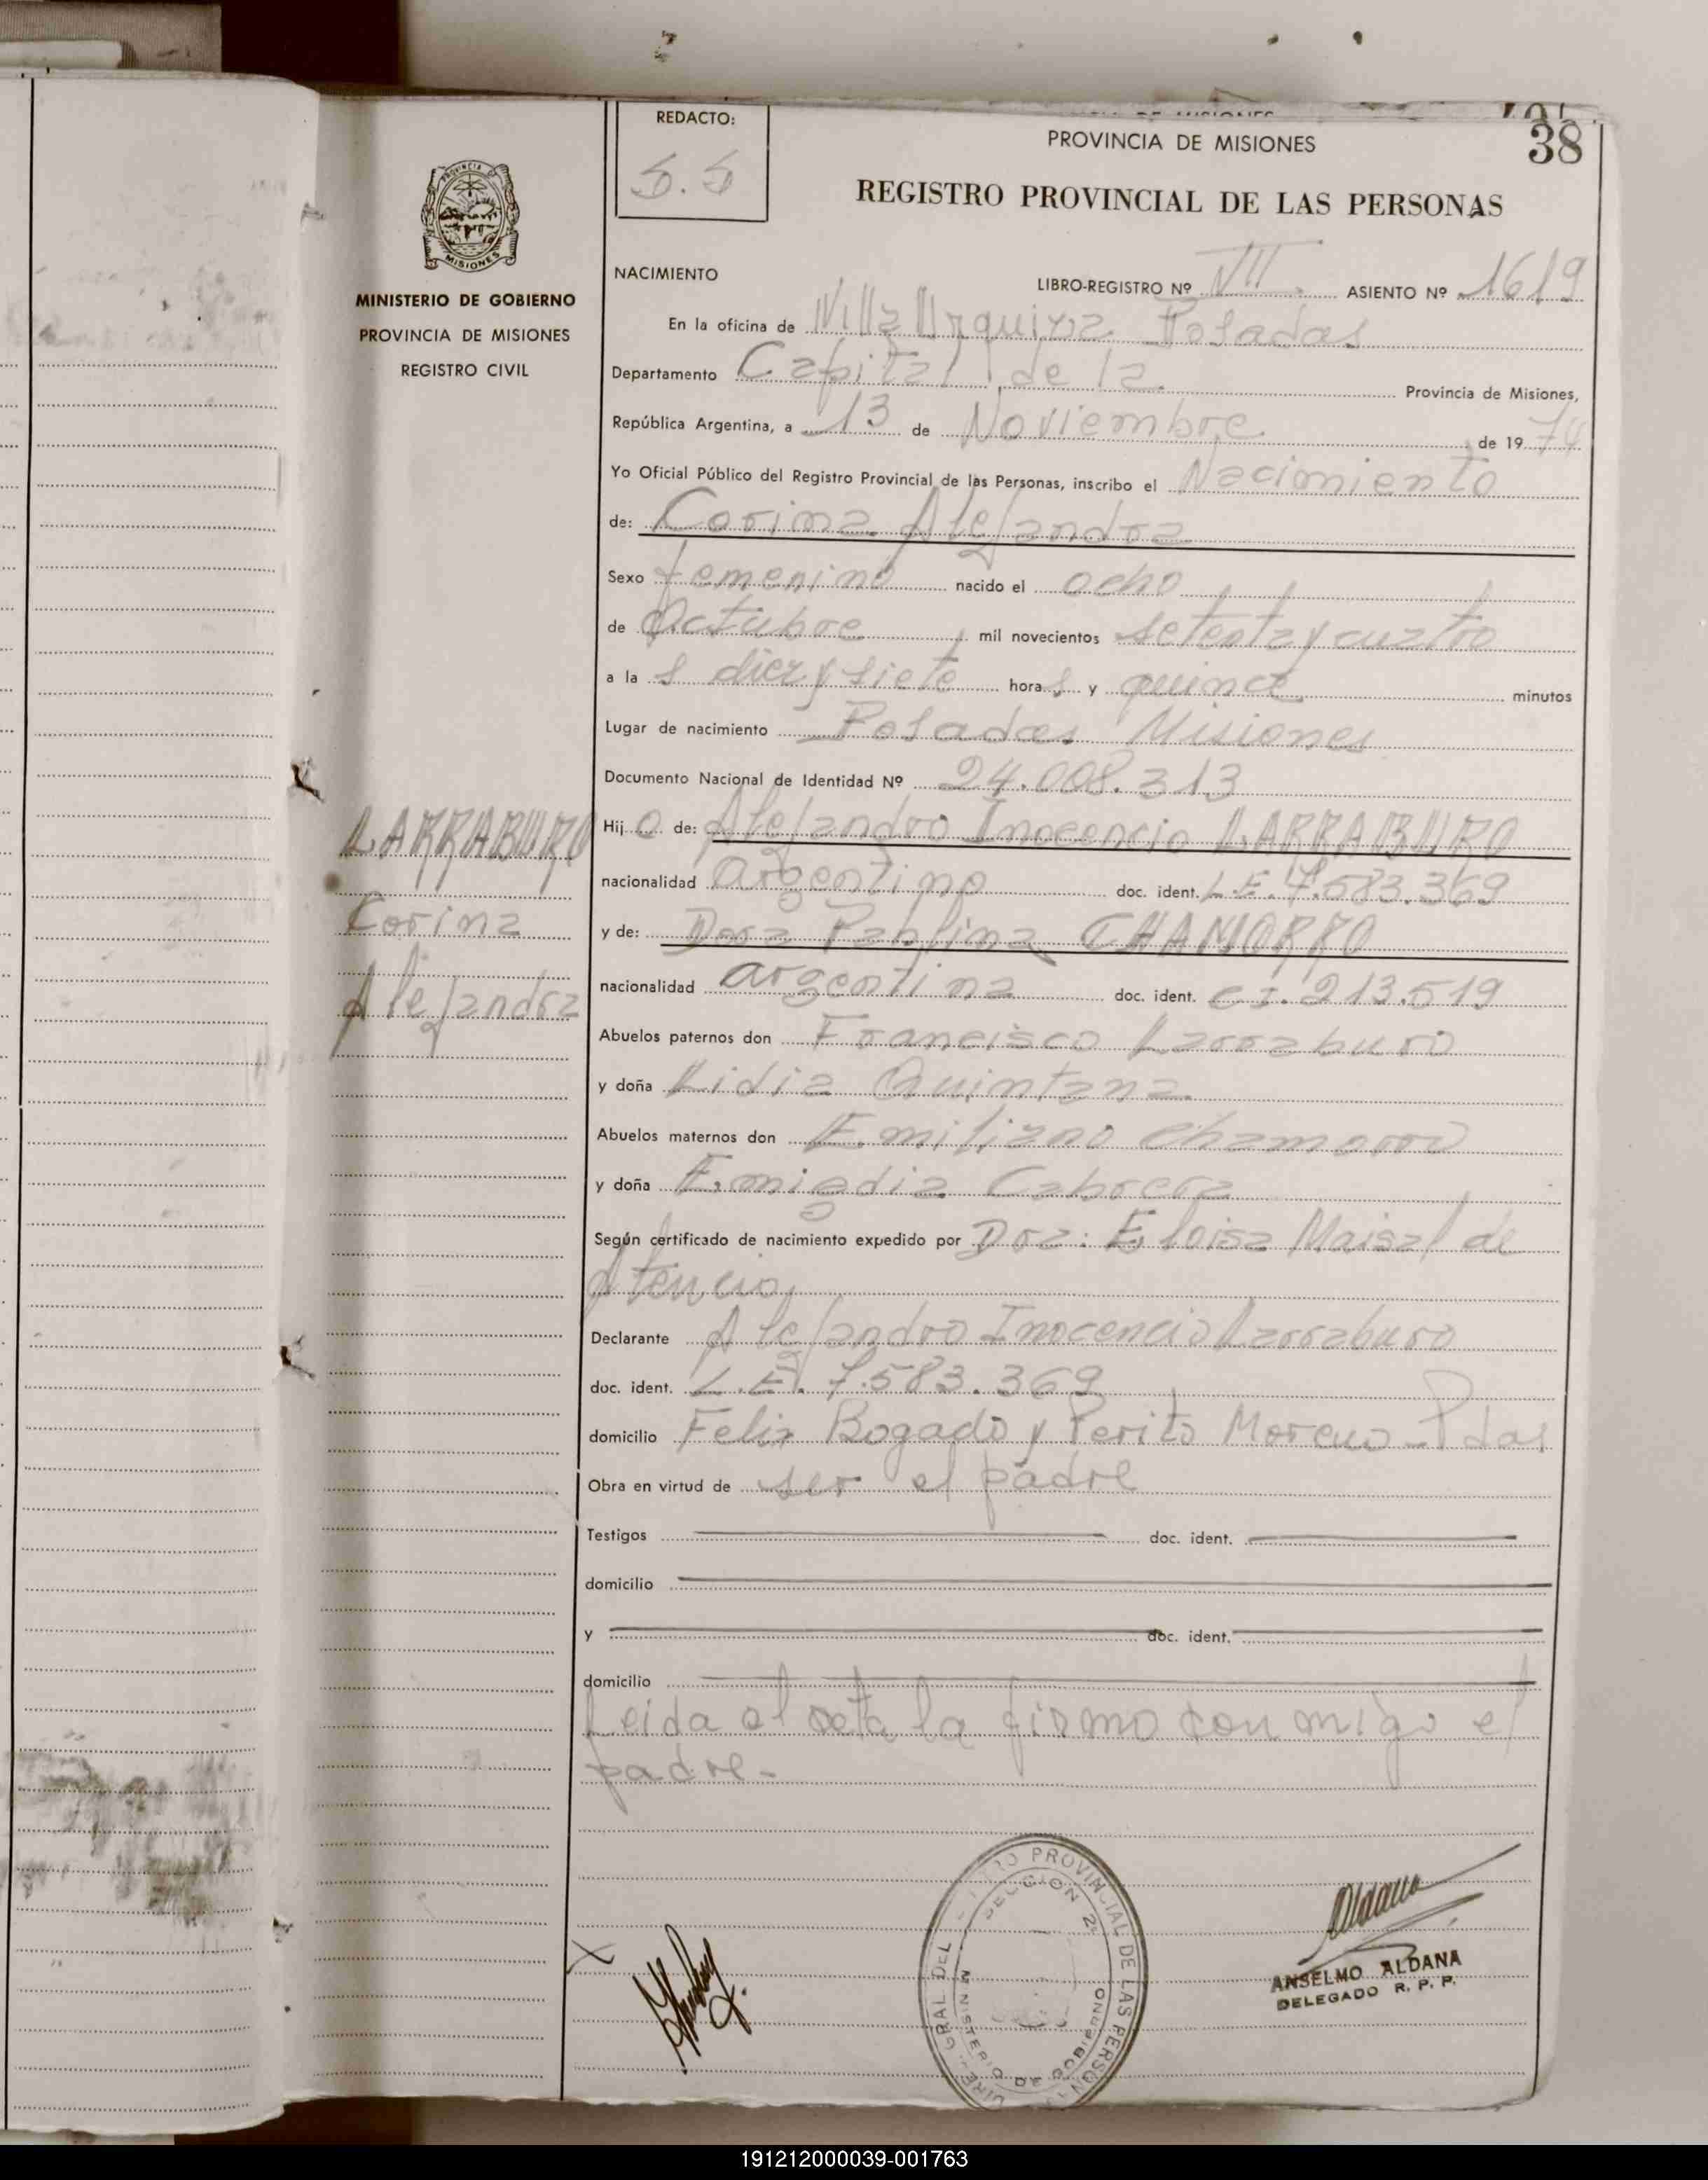 REDACTO:
S.S
PROVINCIA DE MISIONES
38
REGISTRO PROVINCIAL DE LAS PERSONAS
PROVINCIA DE MISIONES
MINISTERIO DE GOBIERNO
PROVINCIA DE MISIONES
REGISTRO CIVIL
NACIMIENTO LIBRO-REGISTRO Nº VII ASIENTO Nº 1619
En la oficina de Villa Urquiza Posadas
Departamento Capital de la Provincia de Misiones,
República Argentina, a 13 de Noviembre de 1974
Yo Oficial Público del Registro Provincial de las Personas, inscribo el Nacimiento
de: Corina Alejandra
Sexo femenino nacido el ocho
de Octubre mil novecientos setenta y cuatro
a la s diez y siete hora s y quince minutos
Lugar de nacimiento Posadas Misiones
Documento Nacional de Identidad Nº 24.008.313
LARRABURO
Corina
Alejandra
Hij a de: Alejandro Inocencio LARRABURO
nacionalidad argentino doc. ident. L.E. 7.583.369
y de: Dora Paulina CHAMORRO
nacionalidad argentina doc. ident. C.I. 213.519
Abuelos paternos don Francisco Larraburo
y doña Lidia Quintana
Abuelos maternos don Emiliano Chamorro
y doña Emigdia Cabrera
Según certificado de nacimiento expedido por Dra: Eloisa Maisal de
Atencio
Declarante Alejandro Inocencio Larraburo
doc. ident. L.E. 7.583.369
domicilio Felix Bogado y Perito Moreno - Pdas
Obra en virtud de ser el padre
Testigos doc. ident.
domicilio
y doc. ident.
domicilio
Leida el acta la firma con migo el
padre-
X
PROVINCIAL DE LAS PERSONAS
SECCION 2ª
MINISTERIO DE GOBIERNO
Aldana
ANSELMO ALDANA
DELEGADO R. P. P.
191212000039-001763